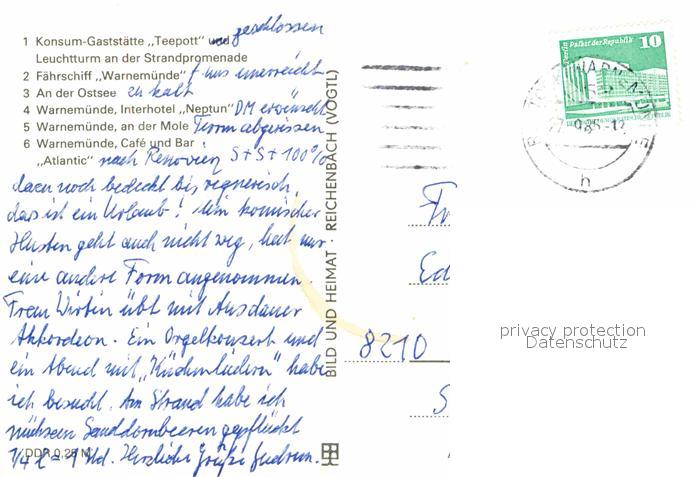 1 Konsum-Gaststätte „Teepott" und geschlossen
Leuchtturm an der Strandpromenade
2 Fährschiff „Warnemünde" f. uns unerreicht
3 An der Ostsee zu kalt
4 Warnemünde, Interhotel „Neptun" DM erwünscht
5 Warnemünde, an der Mole Turm abgerissen
6 Warnemünde, Café und Bar
„Atlantic" nach Renovier. S+S+100%
dazu noch bedeckt bis regnerisch,
das ist ein Urlaub! Mein komischer
Husten geht auch nicht weg, hat nur
eine andere Form angenommen.
Frau Wirtin übt mit Ausdauer
Akkordeon. Ein Orgelkonzert und
ein Abend mit „Küchenliedern" habe
ich besucht. Am Strand habe ich
mühsam Sanddornbeeren gepflückt
1/4 l = 1 Std. Herzliche Grüße
DDR 0,25 M
BILD UND HEIMAT · REICHENBACH (VOGTL)
Berlin Palast der Republik 10
DEUTSCHE DEMOKRATISCHE REPUBLIK
h
8210
S
privacy protection
Datenschutz